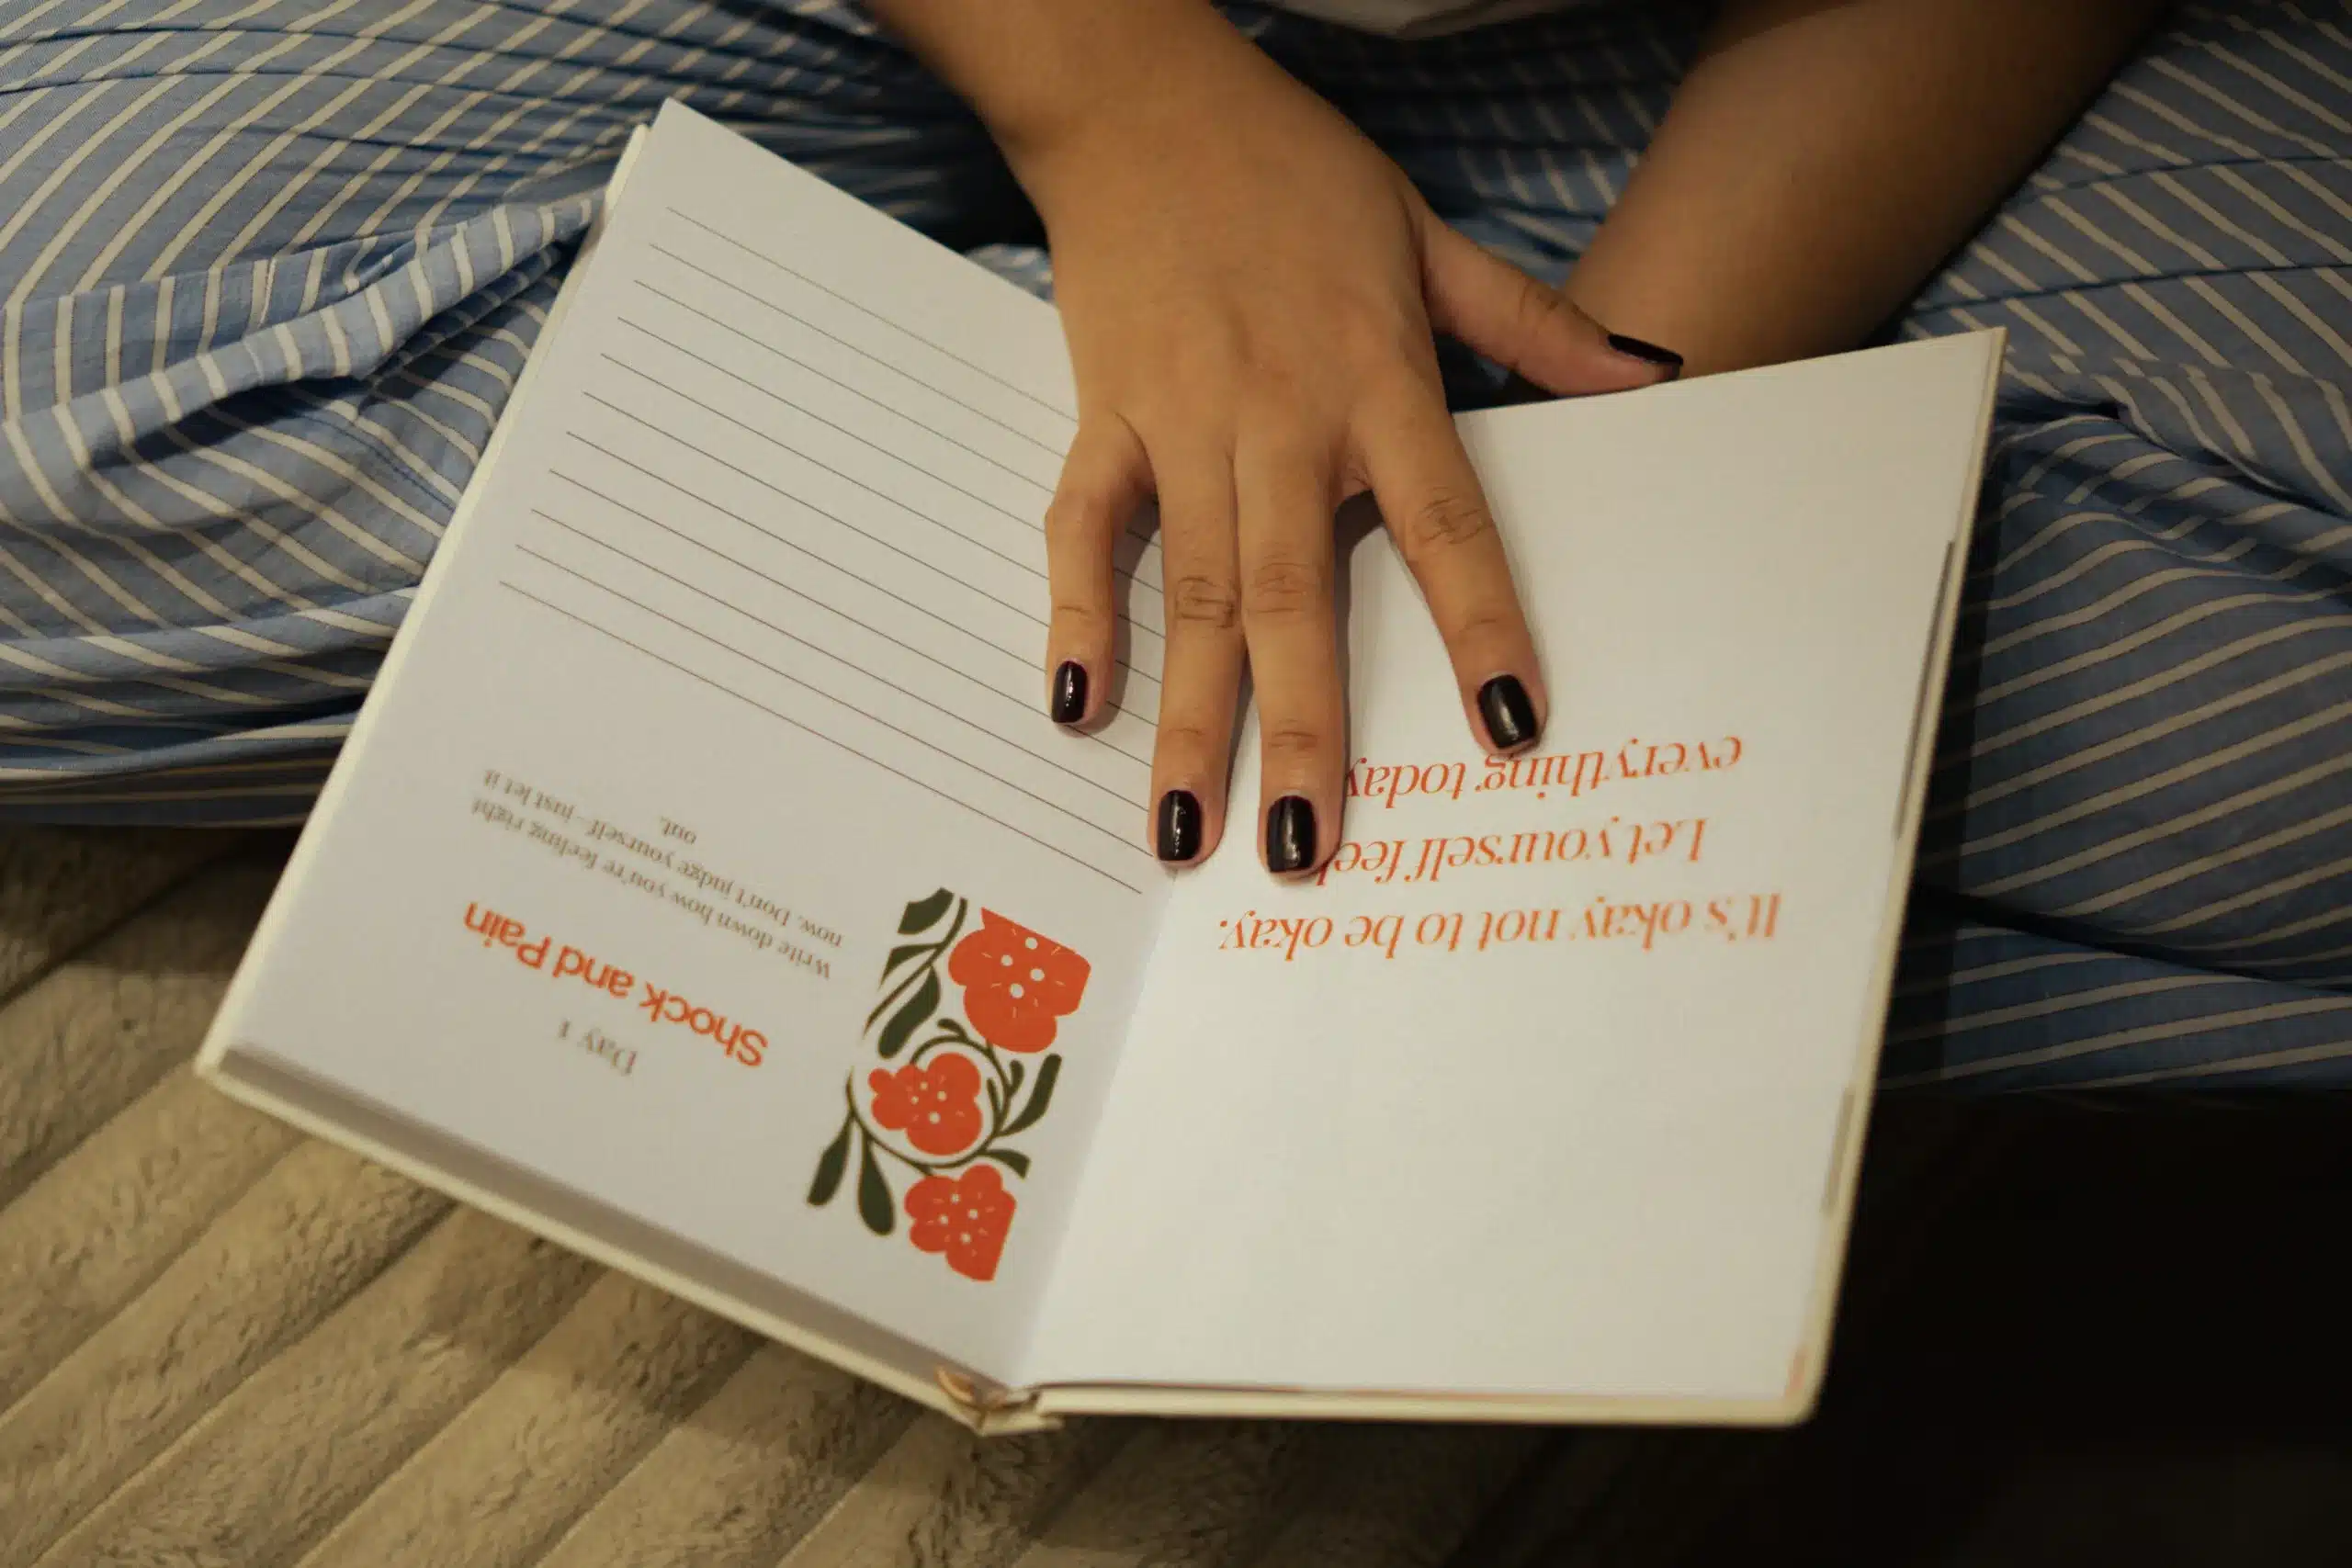 It's okay not to be okay.
Let yourself feel
everything today
Day 1
Shock and Pain
Write down how you're feeling right
now. Don't judge yourself—just let it
out.